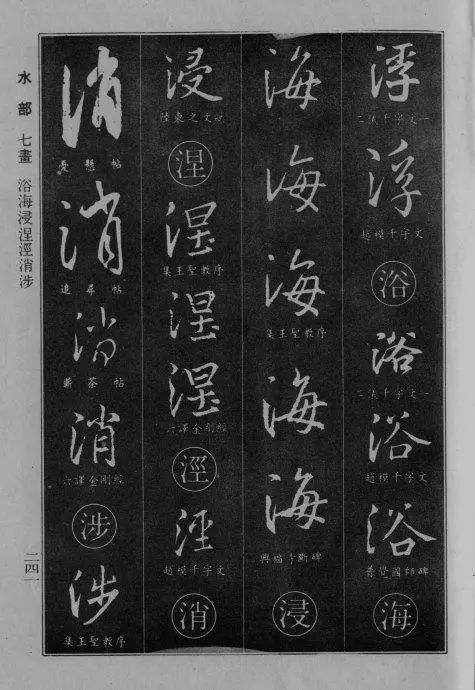 水部 七畫 浴海浸涅涇消涉
二四一
浮
二體千字文一
浮
趙模千字文
浴
浴
二體千字文一
浴
趙模千字文
浴
普覺國師碑
海
海
海
海
集王聖教序
海
海
興福寺斷碑
浸
浸
陸柬之文賦
涅
涅
集王聖教序
涅
涅
六譯金剛經
涇
涇
趙模千字文
消
消
憂懸帖
消
追尋帖
消
蘄茶帖
消
六譯金剛經
涉
涉
集王聖教序